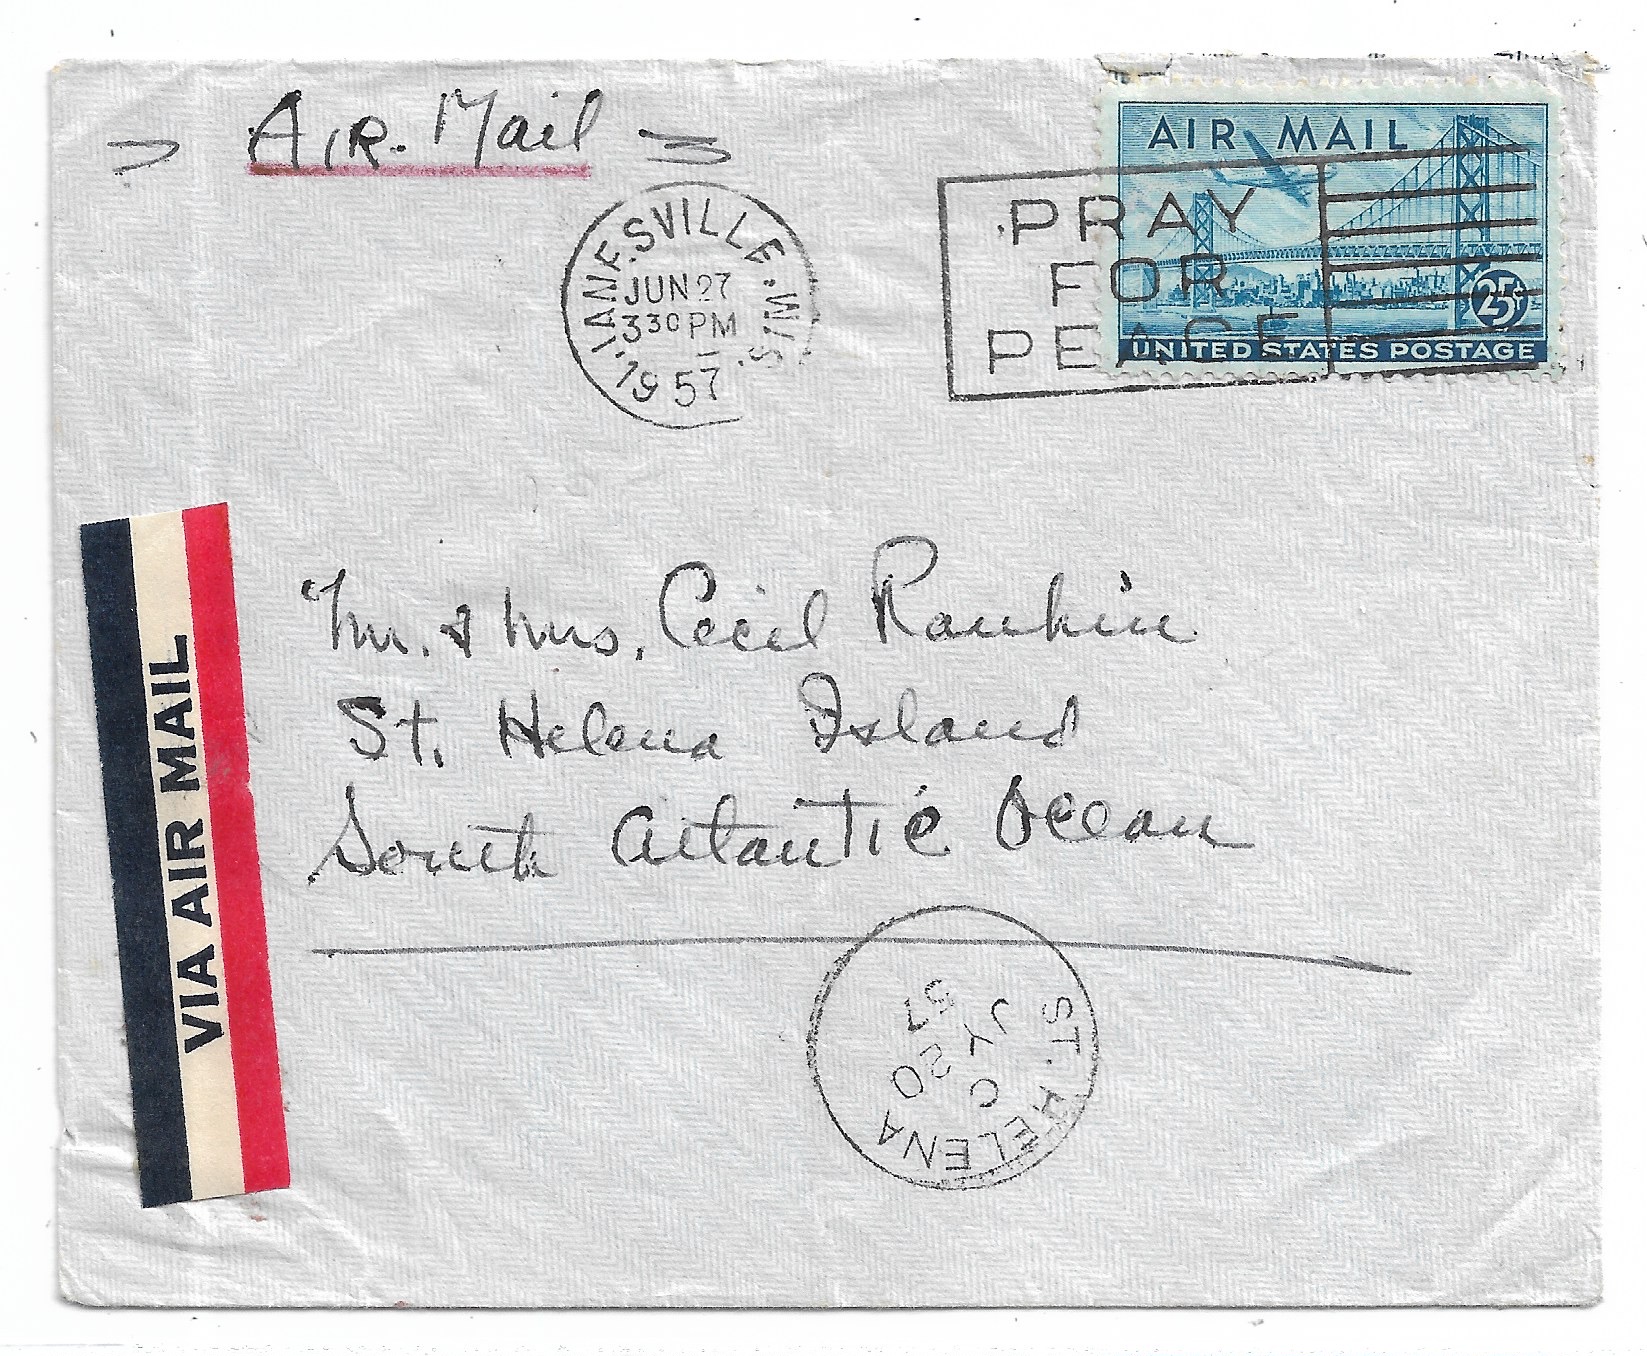 AIR. Mail
AIR MAIL
25¢
UNITED STATES POSTAGE
JANESVILLE. WIS.
JUN 27
330 PM
1957
PRAY
FOR
PEACE
VIA AIR MAIL
Mr. & Mrs. Cecil Rankin
St. Helena Island
South Atlantic Ocean
ST. HELENA
C
JY 20
57